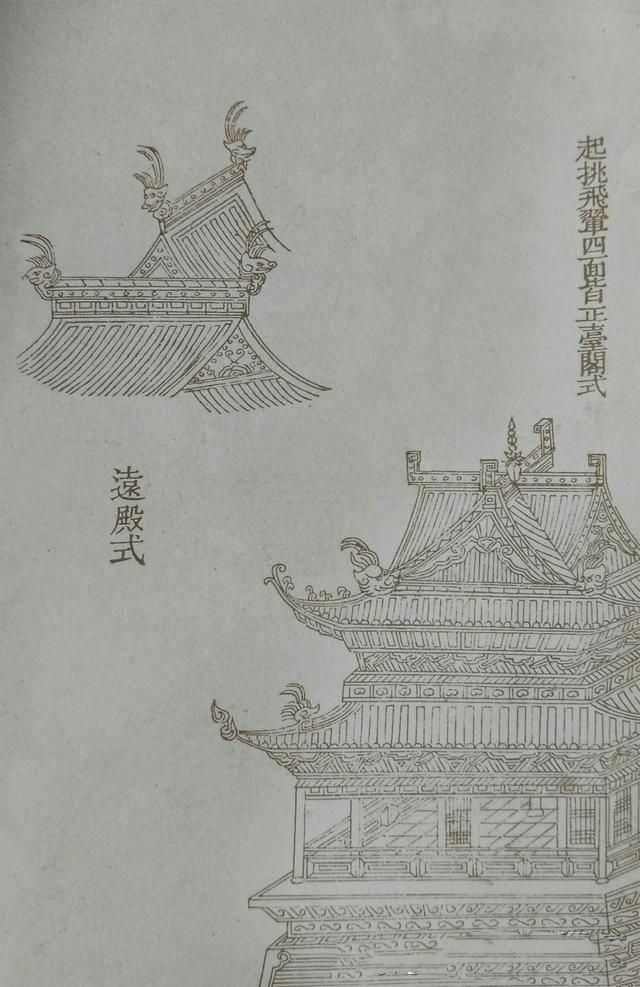 起挑飛翬四面皆正臺閣式
遠殿式